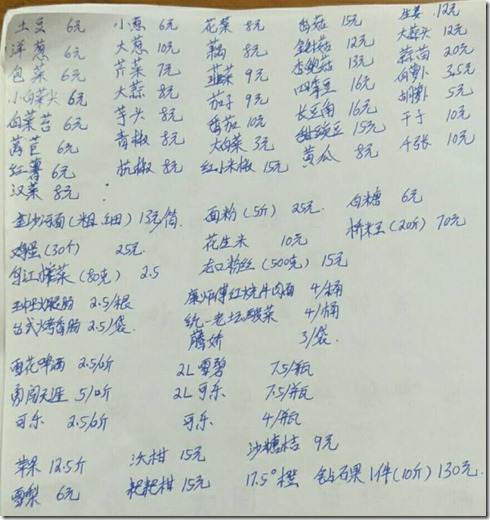 土豆 6元 小葱 6元 花菜 8元 香菇 15元 生姜 12元
洋葱 6元 大葱 10元 藕 8元 金针菇 12元 大蒜头 12元
包菜 6元 芹菜 7元 韭菜 9元 杏鲍菇 13元 蒜苗 20元
小白菜头 6元 大蒜 8元 茄子 9元 四季豆 16元 白萝卜 3.5元
白菜苔 6元 芋头 8元 番茄 10元 长豆角 16元 胡萝卜 5元
莴苣 6元 青椒 8元 大白菜 3元 甜豌豆 15元 干子 10元
红薯 6元 杭椒 8元 红小米椒 15元 黄瓜 8元 千张 10元
汉菜 8元
金沙河面(粗.细) 13元/筒. 面粉(5斤) 25元. 白糖 6元
鸡蛋(30个) 25元. 花生米 10元 桥米王(20斤) 70元
乌江榨菜(80克) 2.5 龙口粉丝(500克) 15元
王中王火腿肠 2.5/根 康师傅红烧牛肉面 4/桶
台式烤香肠 2.5/袋. 统一老坛酸菜 4/桶
3/袋.
雪花啤酒 2.5/听 2L雪碧 7.5/瓶
勇闯天涯 5/听 2L可乐 7.5/瓶
可乐 2.5/听 可乐 4/瓶
苹果 12.5斤 沃柑 15元 沙糖桔 9元
雪梨 6元 耙耙柑 15元 17.5°橙 钻石果1件(10斤) 130元.